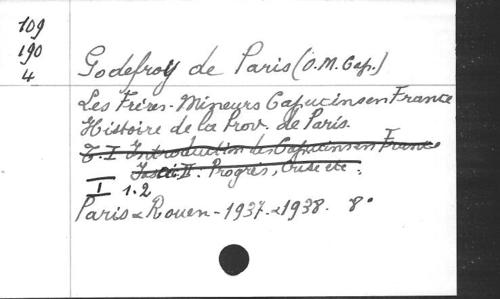 109
190
4
Godefroy de Paris (O.M. Cap.)
Les Frères-Mineurs Capucins en France
Histoire de la Prov. de Paris.
T. I Introduction des Capucins en France
Fasc. II: Progrès, Crise etc.
I 1.2
Paris & Rouen - 1937 - 1938. 8°